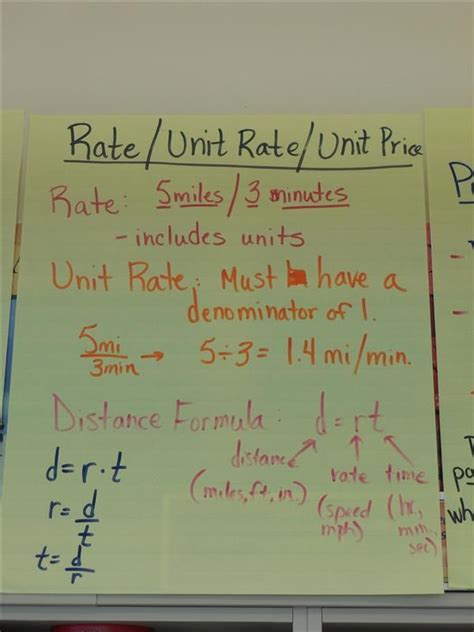 Rate/Unit Rate/Unit Price
Rate: 5miles/3 minutes
- includes units
Unit Rate: Must have a
denominator of 1.
5mi
3min → 5÷3= 1.4 mi/min.
Distance Formula: d=rt
distance
(miles, ft, in.)
rate
(speed
mph)
time
(hr,
min.
sec)
d=r·t
r=d/t
t=d/r
P
-
-
T
pa
wh